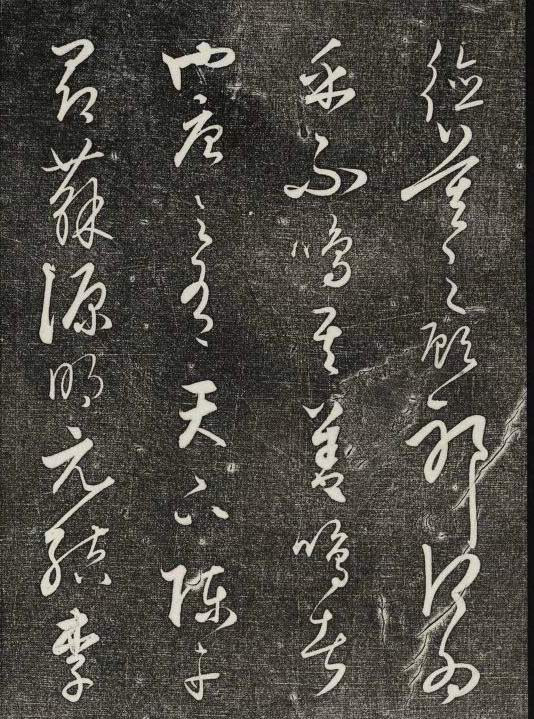 德莫之顧邪何為
乎不鳴其善鳴者
也唐之有天下陳子
昂蘇源明元結李